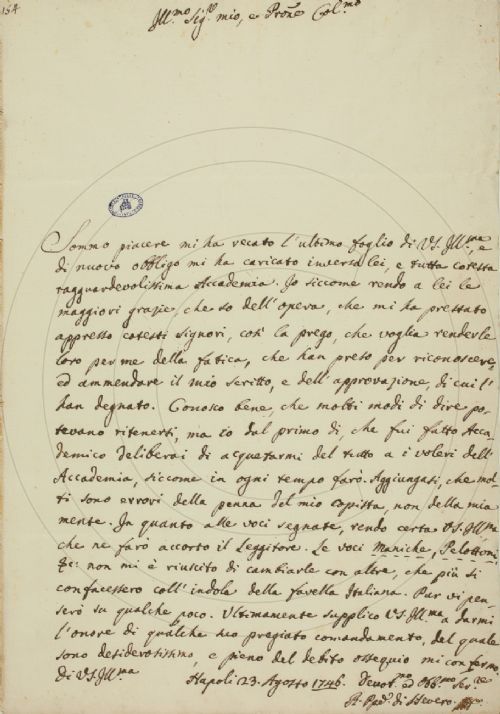 154
Ill.mo Sig.r mio, e Prōne Col.mo
Sommo piacere mi ha recato l'ultimo foglio di VS. Ill.ma, e
di nuovo obbligo mi ha caricato inverso lei, e tutta cotesta
ragguardevolissima Accademia. Io siccome rendo a lei le
maggiori grazie, che so dell'opera, che mi ha prestato
appresso cotesti Signori, così la prego, che voglia renderle
loro per me della fatica, che han preso per riconoscere,
ed ammendare il mio scritto, e dell'approvazione, di cui l'
han degnato. Conosco bene, che molti modi di dire po-
tevano ritenersi, ma io dal primo dì, che fui fatto Acca-
demico deliberai di acquetarmi del tutto a i voleri dell'
Accademia, siccome in ogni tempo farò. Aggiungasi, che mol-
ti sono errori della penna del mio copista, non della mia
mente. In quanto alle voci segnate, rendo certa VS. Ill.ma
che ne farò accorto il Leggitore. Le voci Maniche, Pelottoni
&c: non mi è riuscito di cambiarle con altre, che più si
confacessero coll'indola della favella Italiana. Pur vi pen-
serò su qualche poco. Ultimamente supplico VS. Ill.ma a darmi
l'onore di qualche suo pregiato comandamento, del quale
sono desiderosissimo, e pieno del debito ossequio mi confermo
Di VS. Ill.ma
Napoli 23. Agosto 1746. Devot.mo ed Obb.mo Ser.re
di Severo